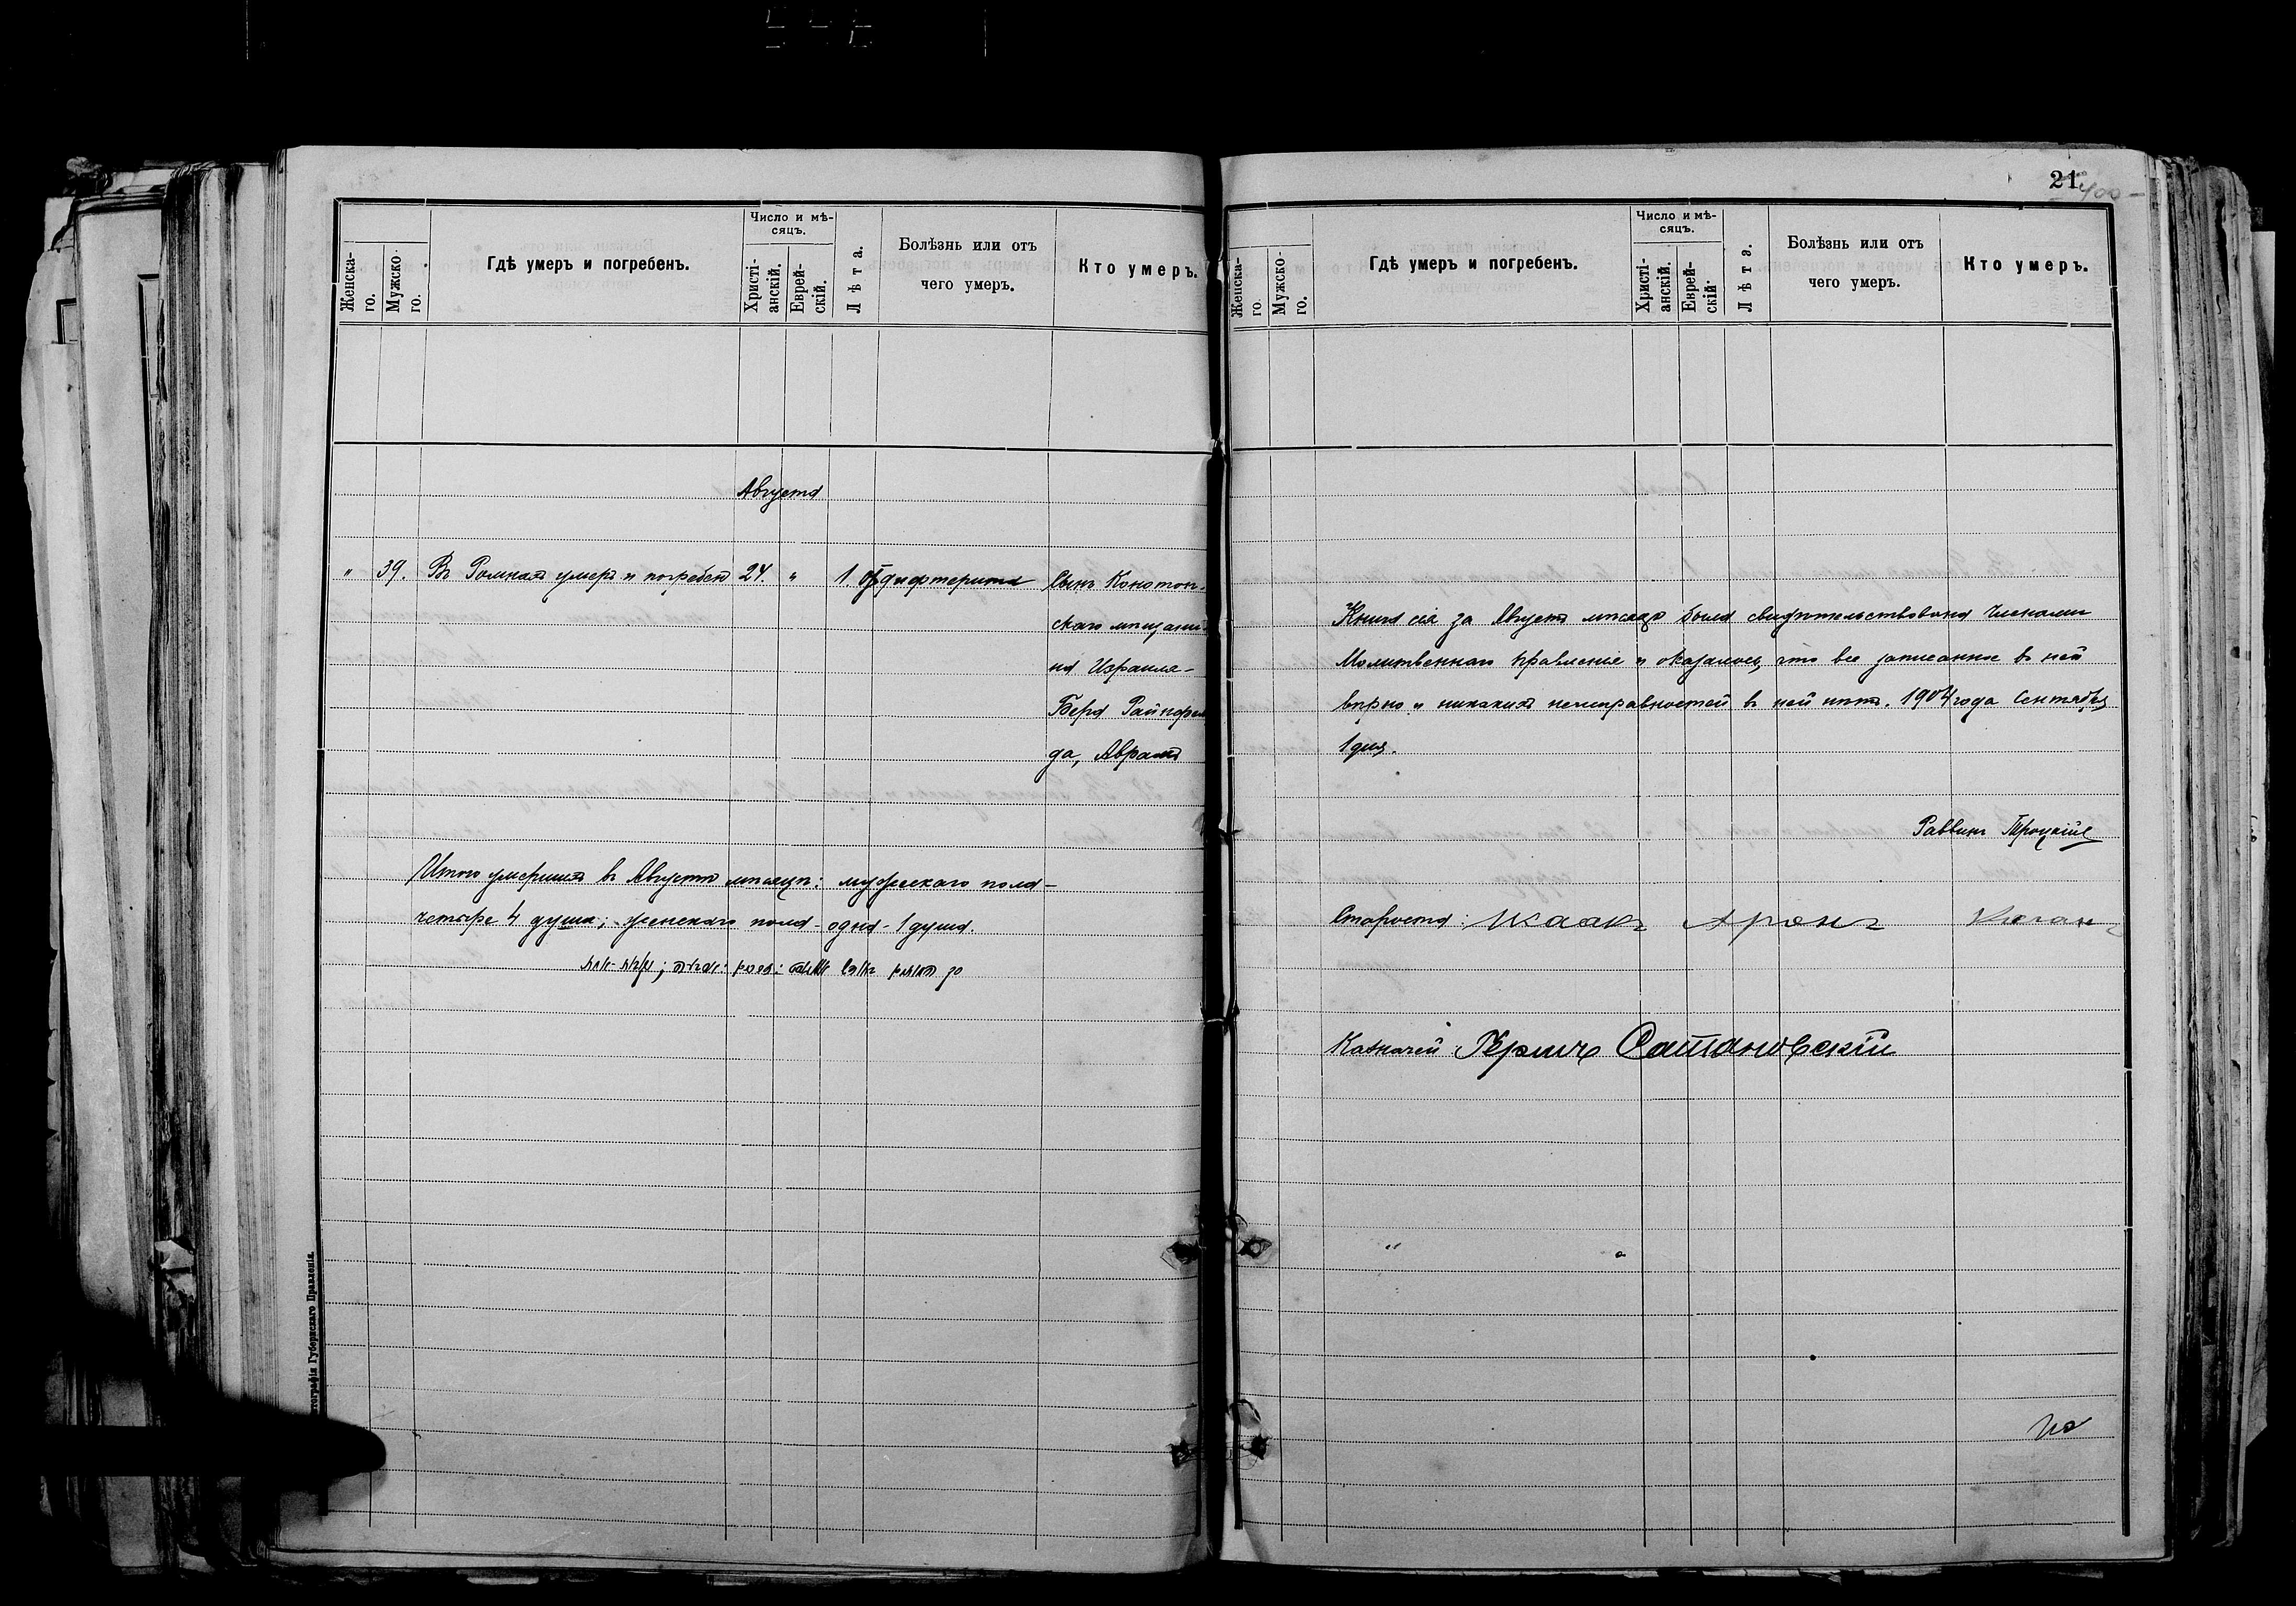 21.
400
Женска-
го.
Мужско-
го.
Гдѣ умеръ и погребенъ.
Число и мѣ-
сяцъ.
Христі-
анскій.
Еврей-
скій.
Лѣта.
Болѣзнь или отъ
чего умеръ.
Кто умеръ.
Августа
" 39. Въ Ромнахъ умеръ и погребенъ 24. " 1. отъ дифтерита Сынъ Конотоп-
скаго мѣщани-
на Израиля-
Бера Райнфель
да, Аврамъ
Итого умершихъ въ Августѣ мѣсяцѣ: мужескаго пола-
четыре 4 души; женскаго пола - одна - 1 душа.
тографія Губернскаго Правленія.
Женска-
го
Мужско-
го.
Гдѣ умеръ и погребенъ.
Число и мѣ-
сяцъ.
Христі-
анскій.
Еврей-
скій.
Лѣта.
Болѣзнь или отъ
чего умеръ.
Кто умеръ.
Книга сія за Августъ мѣсяцъ была свидѣтельствована Членами
Молитвеннаго Правленія и оказалось, что все записанное въ ней
вѣрно и никакихъ неисправностей въ ней нѣтъ. 1904 года Сентября
1 дня.
Раввинъ
Староста: Аронъ Коганъ
Казначей Гершъ Сатановскій